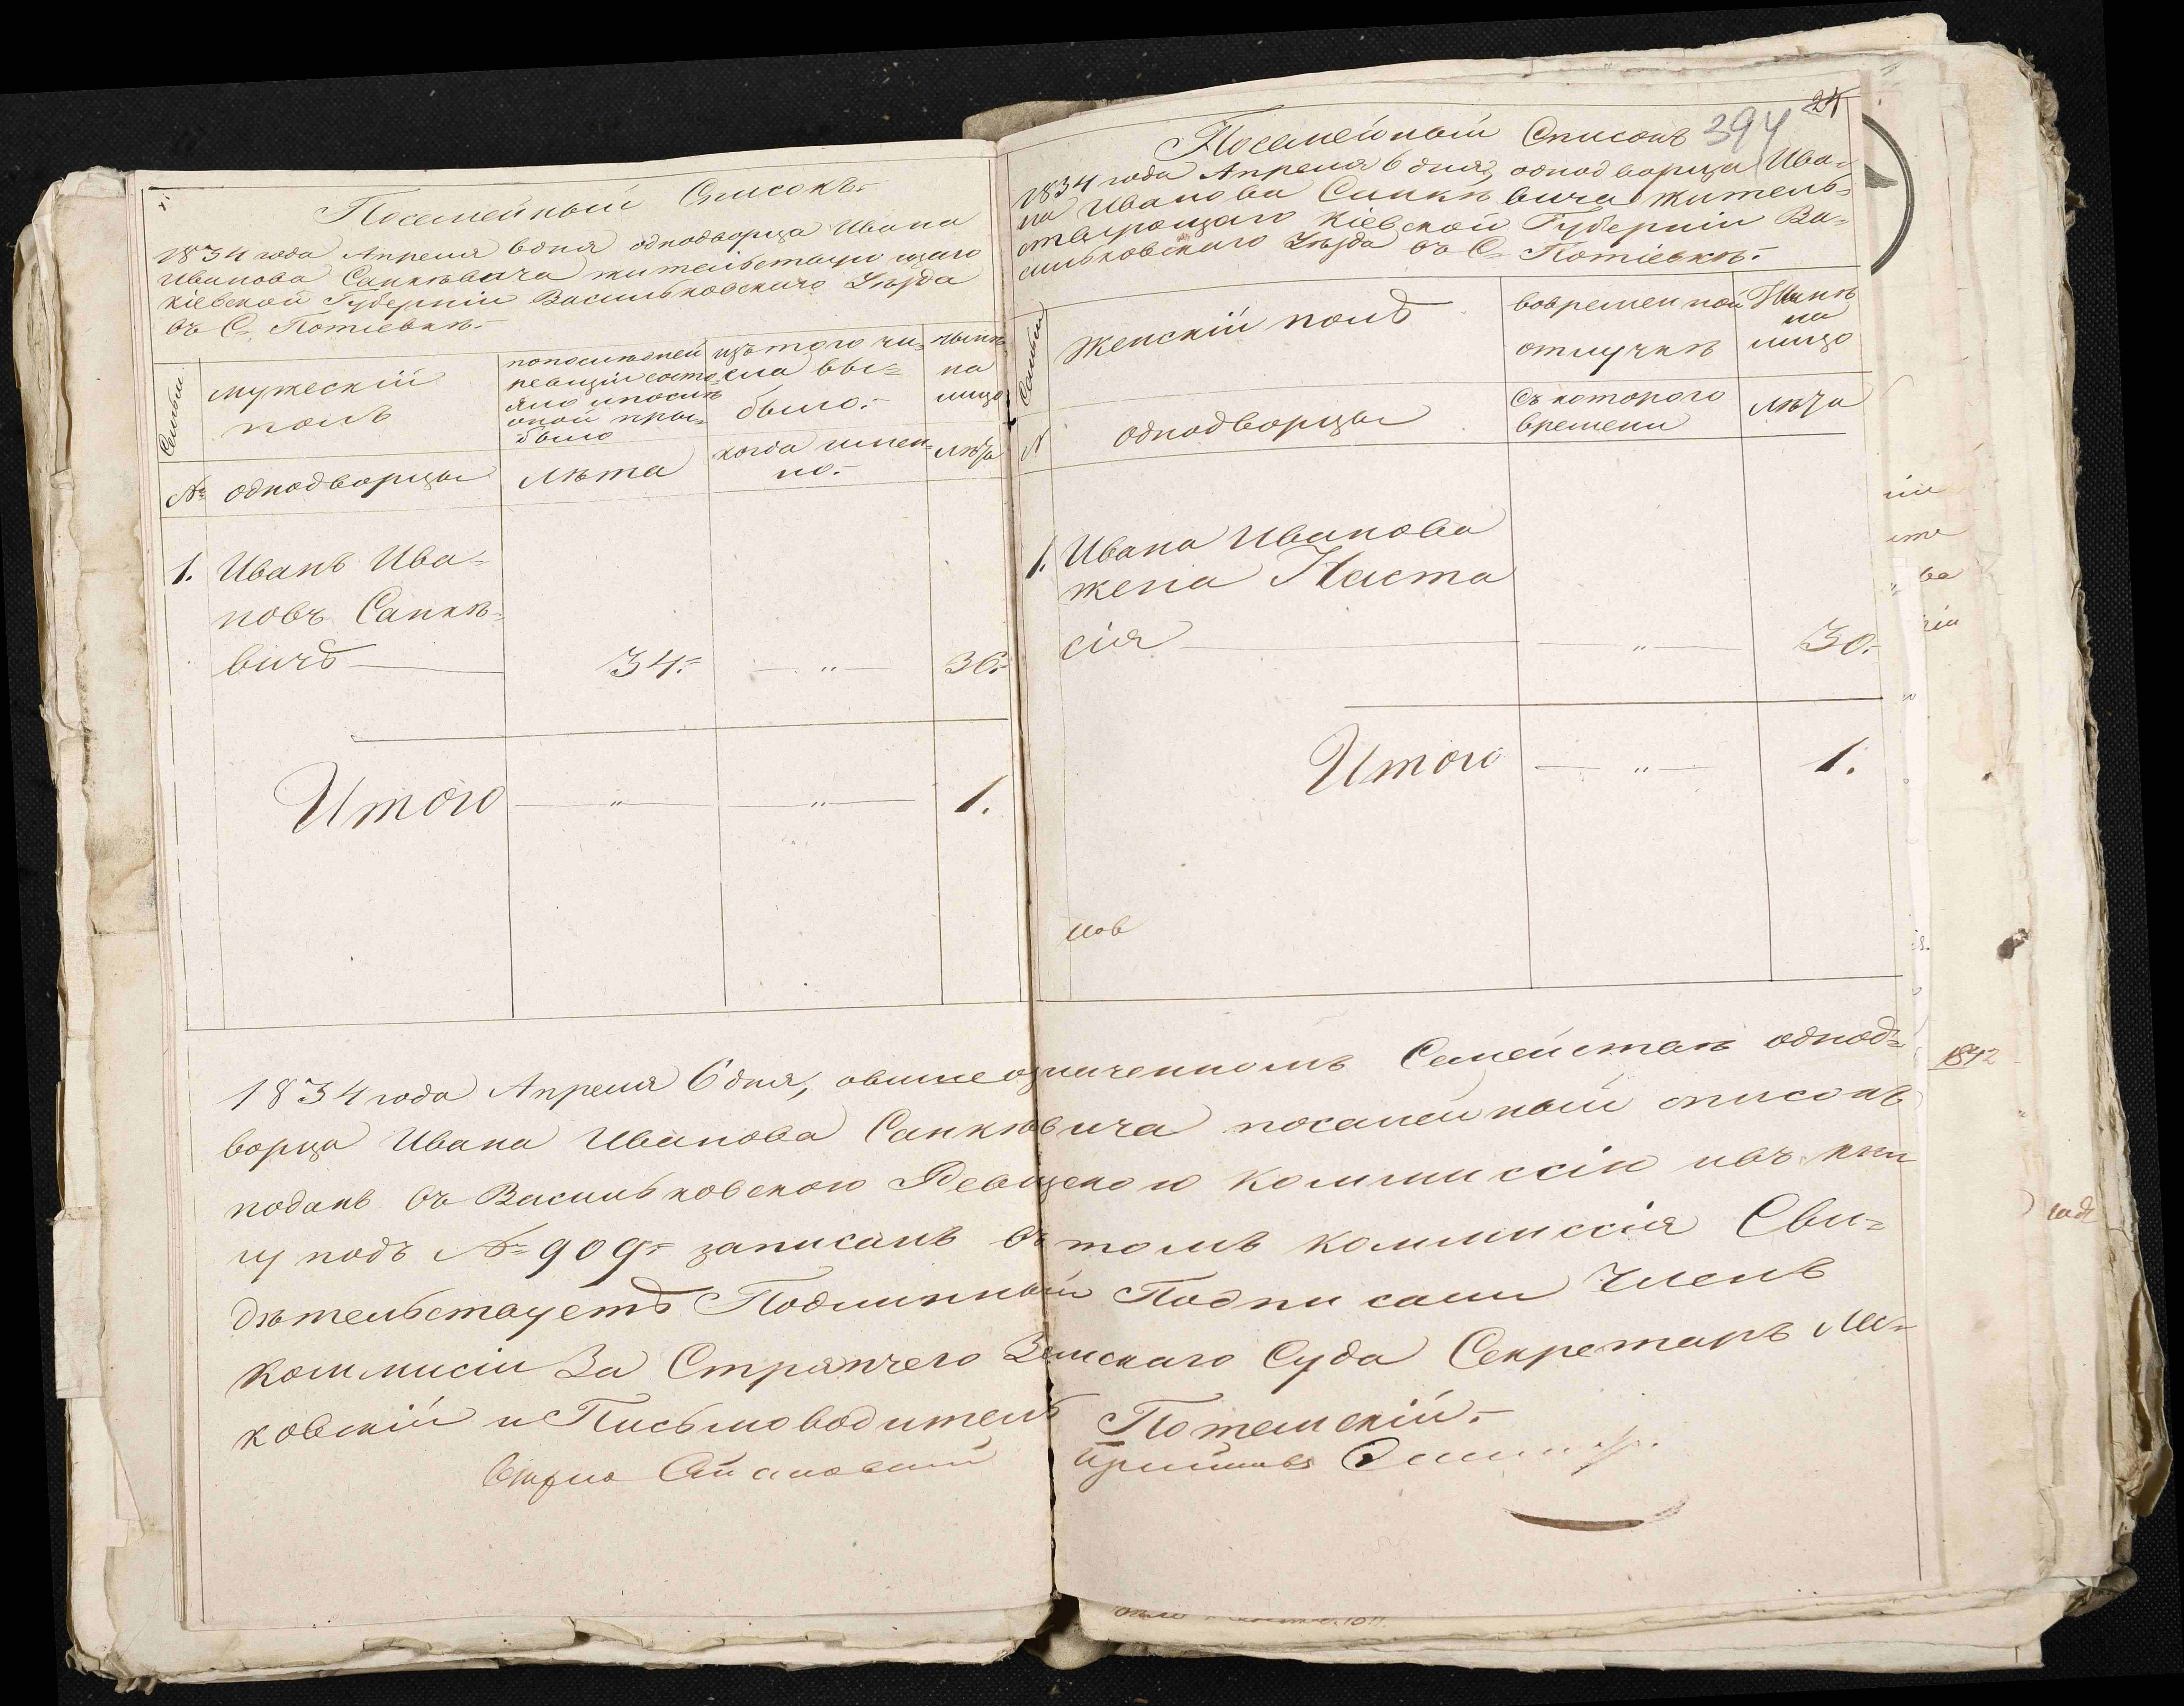 Посемейный Списокъ
1834 года Апреля 6 дня однодворца Ивана
Иванова Санкѣвича жительствующаго
Кіевской Губерніи Васильковскаго Уѣзда
въ С. Потіевкѣ.
Семьи
мужескій
полъ
попослѣдней
ревизіи состо=
яло ипослѣ
оной при=
было
изъ того чи=
сла вы=
было.
нынѣ
на
лицо
№ однодворцы
лѣта
когда имен=
но.
лѣта
1. Иванъ Ива=
новъ Санкѣ=
вичъ 34. " 36.
Итого " " 1.
394 24
Посемейный Списокъ
1834 года Апреля 6 дня, однодворца Ива=
на Иванова Санкѣвича житель=
ствующаго Кіевской Губерніи Ва=
сильковскаго Уѣзда въ С. Потіевкѣ.
Семьи
Женскій полъ
вовременной
отлучкѣ
Нынѣ
на
лицо
№ однодворцы
Съ котораго
времени
лѣта
1. Ивана Иванова
жена Наста
сія " 30.
Итого " 1.
1834 года Апреля 6 дня, овышеозначенномъ Семействѣ однод=
ворца Ивана Иванова Санкѣвича посемейный списокъ
поданъ въ Васильковскою Ревизскою Коммиссію ивъ кни
гу подъ № 909 записанъ въ томъ коммиссія Сви=
дѣтельствуетъ Подлинный Подписали Членъ
Коммисіи За Стряпчего Земскаго Суда Секретарь Ле=
ковскій и Письмоводитель Потемскій.
Вѣрно
1842